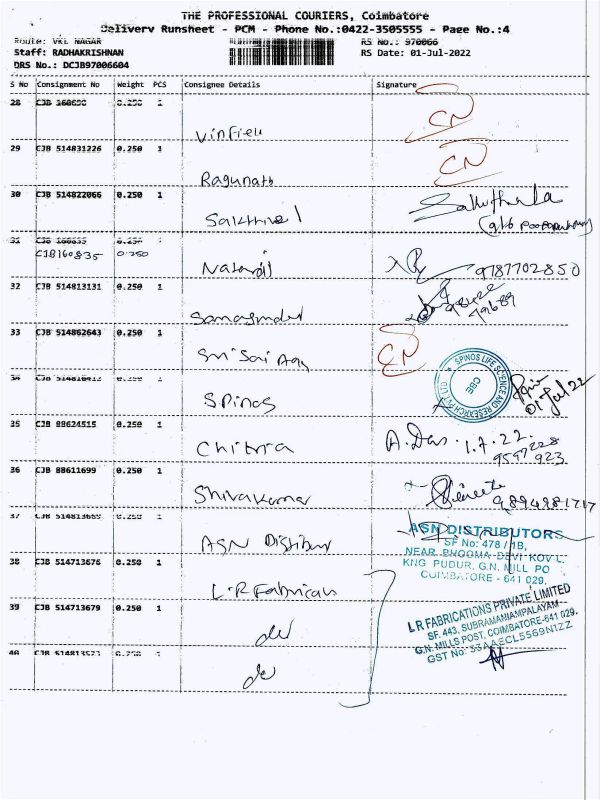 THE PROFESSIONAL COURIERS, Coimbatore
Delivery Runsheet - PCM - Phone No.:0422-3505555 - Page No.:4
Route: VKL NAGAR RS No.: 970066
Staff: RADHAKRISHNAN RS Date: 01-Jul-2022
DRS No.: DCJB97006604
S No Consignment No Weight PCS Consignee Details Signature
28 CJB 160690 0.250 1
CN
29 CJB 514831226 0.250 1
CN
Ragunath
30 CJB 514822066 0.250 1
Sakthivel
31 CJB 160835 0.250 1
CJB160835 0.250
9787702850
32 CJB 514813131 0.250 1
33 CJB 514862643 0.250 1
Sri Sai CN
34 0.250 1
Spinos SPINOS LIFE SCIENCE AND RESEARCH PVT LTD CBE
01 Jul 22
35 CJB 88624515 0.250 1
Chitra A. Das. 1.7.22.
9597228
923
36 CJB 88611699 0.250 1
Shivakumar 9894981717
37 CJB 514813669 0.250 1
ASN DISTRIBUTORS
SF No: 478 / 1B,
NEAR BHOOMA DEVI KOVIL,
KNG PUDUR, G.N. MILL PO
COIMBATORE - 641 029.
ASN
38 CJB 514713676 0.250 1
L.R Fabrication
39 CJB 514713679 0.250 1
L R FABRICATIONS PRIVATE LIMITED
SF. 443, SUBRAMANIAMPALAYAM,
G.N. MILLS POST, COIMBATORE-641 029.
GST No: 33AAECL5569N1ZZ
do
40 0.250 1
do